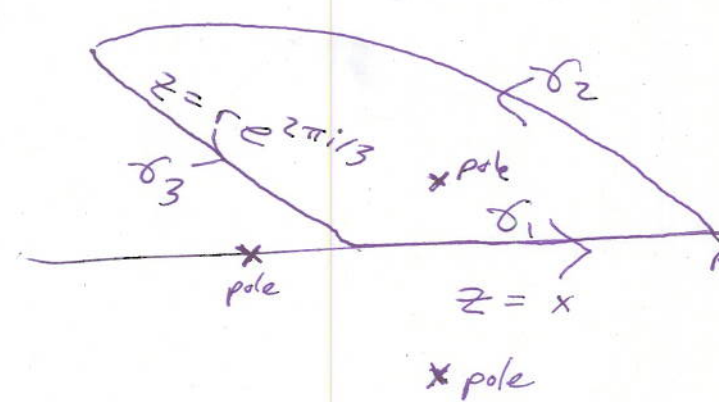 γ₂
z = r e^{2πi/3}
γ₃
× pole
γ₁
× pole
z = x
× pole